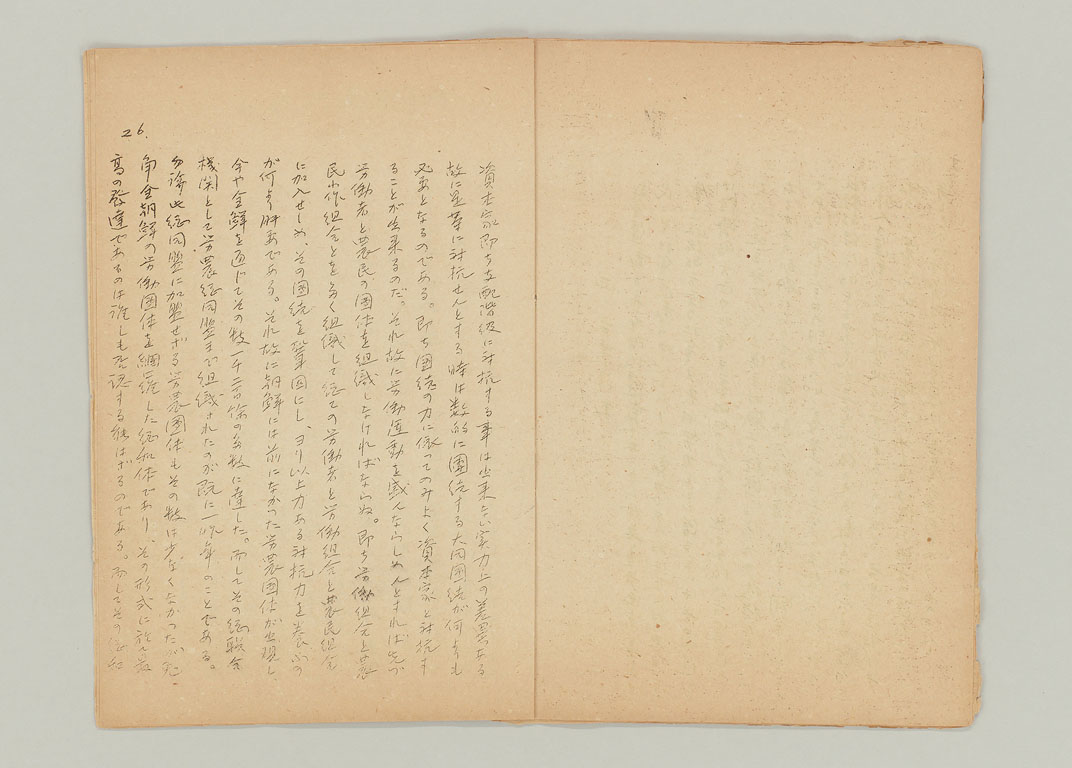 26.
資本家即ち支配階級に対抗する事は出来ない実力上の差異ある
故に是等に対抗せんとする時は数的に團結する大同團結が何よりも
必要となるのである。即ち團結の力に依ってのみよく資本家と対抗す
ることが出来るのだ。それ故に労働運動を盛んならしめんとすれば先づ
労働者と農民の團体を組織しなければならぬ。即ち労働組合と農
民小作組合とを多く組織して総ての労働者と労働組合と農民組合
に加入せしめ、その團結を鞏固にし、ヨリ以上力ある対抗力を養ふの
が何より肝要である。それ故に朝鮮には前になかった労農團体が出現し
今や全鮮を通じてその数一千二百余の多数に達した。而してその総聯合
機関として労農総同盟まで組織されたのが既に一昨年のことである。
勿論此総同盟に加盟せざる労農團体もその数は少なくなかったが
角全朝鮮の労働團体を網羅した総和体であり、その形式に於て最
高の発達であるのは誰しも否認する能はざるのである。而してその